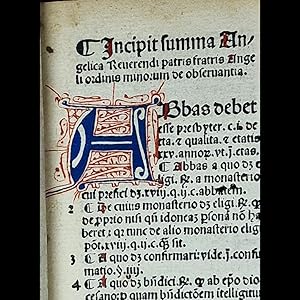 ¶ Incipit summa An-
gelica Reuerendi patris fratris Ange
li ordinis minorum de obseruantia.
ABbas debet
esse presbyter. c. i. de
ta. & qualita. & etatis
xxv. annoꝝ. vt .j. etas.
¶ Abbas a quo dꝫ
eligi. &. a monasterio
cui preficit dꝫ. xvij. q. ij. c. abbatem.
2 ¶ De cuius monasterio dꝫ eligi. &.
de ꝓprio nisi qñ idoneꝰ psona nō ha
beret: tunc de alio monasterio eligi
põt. xvij. q. ij. c. sit.
3 ¶ A quo dꝫ confirmari: vide .j. confir
matio. §. iiij.
4 ¶ A quo dꝫ bñdici. &. ab epo dio
cesano: quam bñdictōem